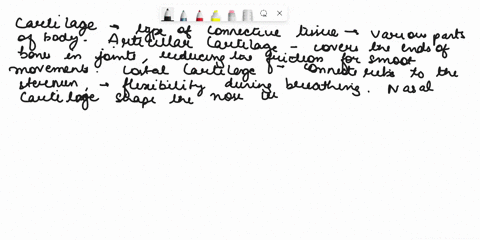 Cartilage → type of connective tissue → various parts
of body. Articular Cartilage - covers the ends of
bone in joints, reducing the friction for smoot
movements. Costal Cartilage - connect ribs to the
sternum, → flexibility during breathing. Nasal
Cartilage shape the nose